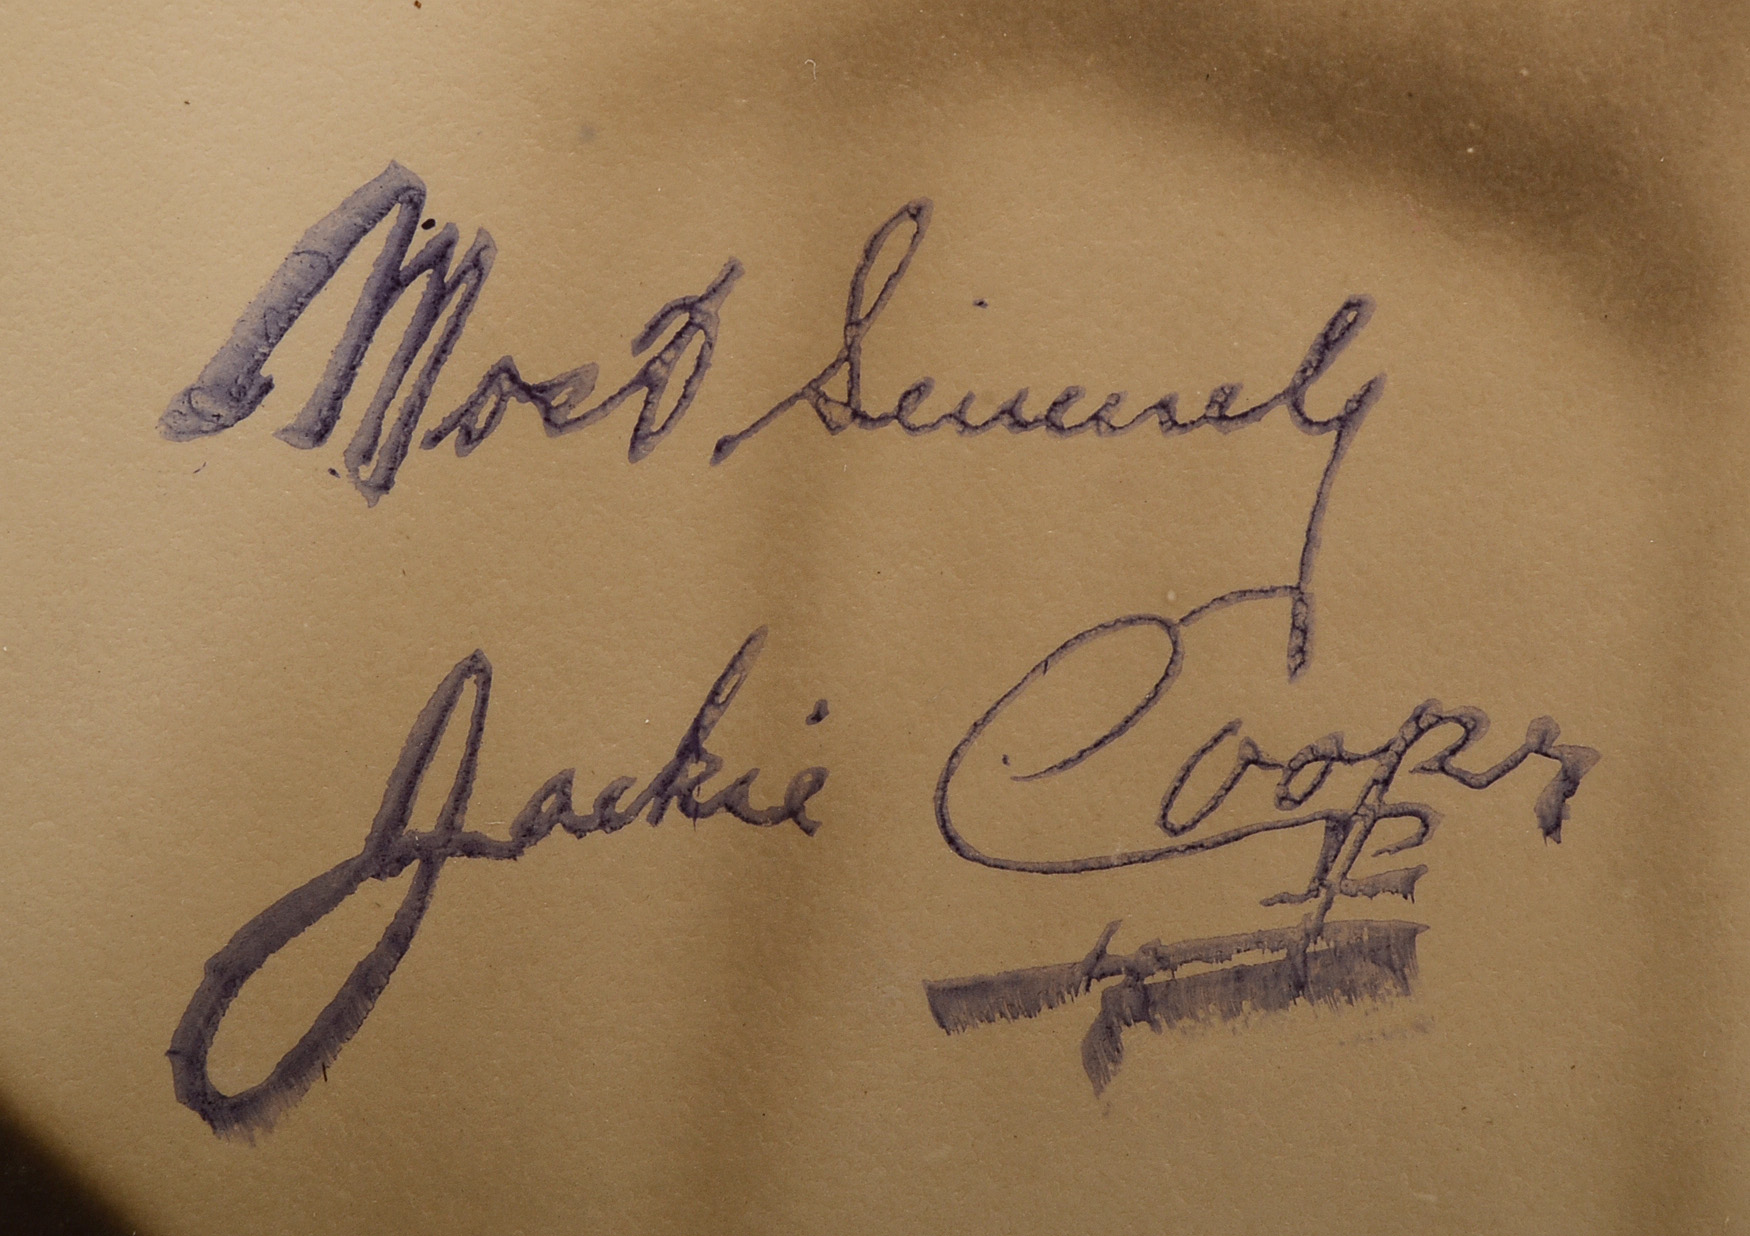 Most Sincerely
Jackie Cooper